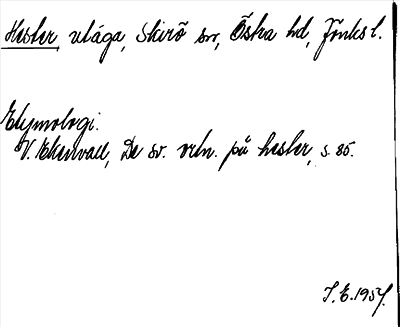 Hesler, utäga, Skirö sn, Östra hd, Jönk.l.
Etymologi.
V. Ekenvall, De sv. ortn. på hesler, s. 85.
J.E. 1957.